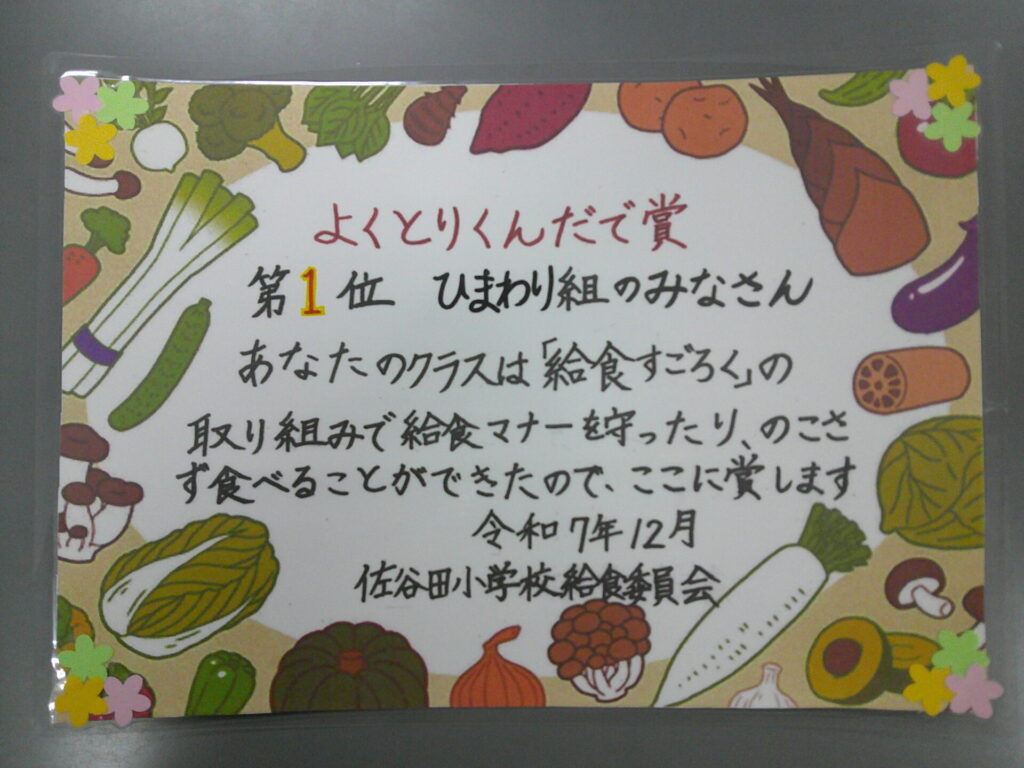 よくとりくんだで賞
第1位 ひまわり組のみなさん
あなたのクラスは「給食すごろく」の
取り組みで給食マナーを守ったり、のこさ
ず食べることができたので、ここに賞します
令和7年12月
佐谷田小学校給食委員会